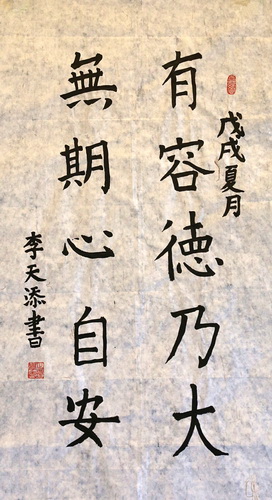 戊戌夏月
有容德乃大
無期心自安
李天添書